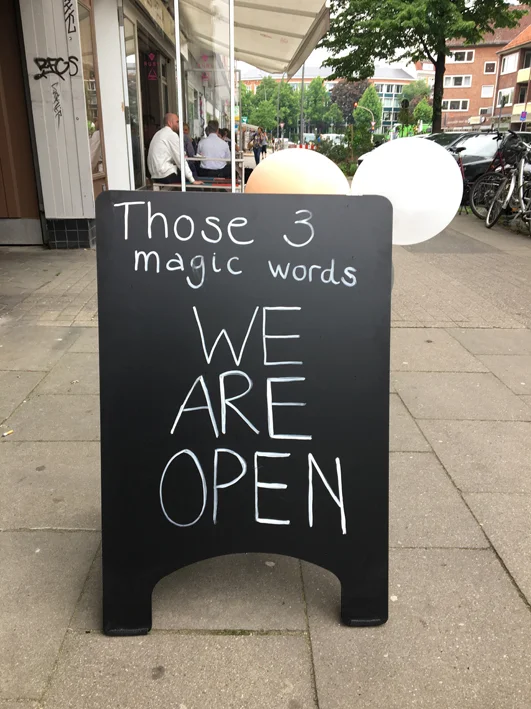 Those 3
magic words
WE
ARE
OPEN